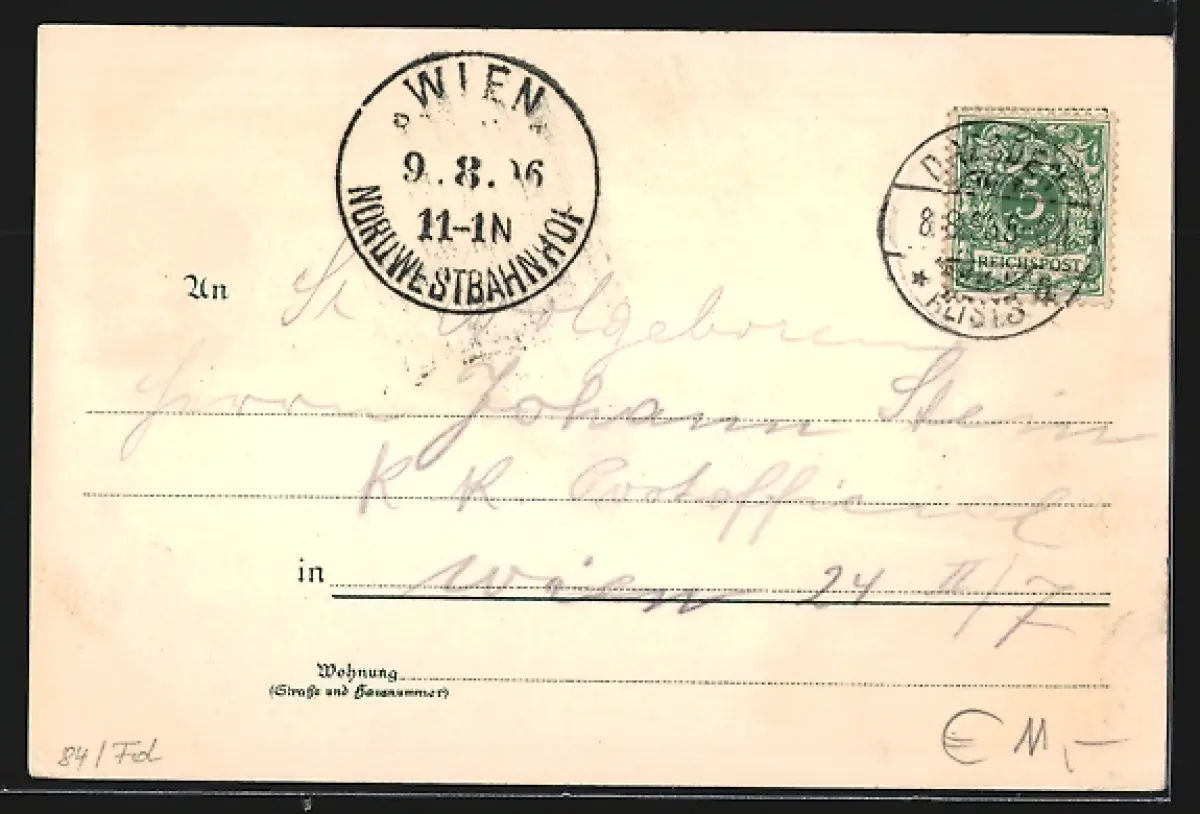 WIEN
9.8.96
11-1N
NORDWESTBAHNHOF
DRESDEN
8.8.96.8-9
ALTST. 8
5
REICHSPOST
An
Sr Wolgeboren
Herrn Johann Stein
K. K. Postofficial
in Wien 24 II/7
Wohnung
(Straße und Hausnummer)
84/Fd
€ 11,-